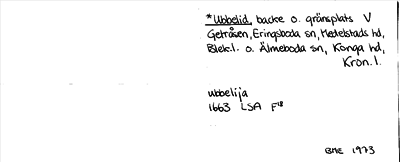 *Ubbelid, backe o. gränsplats V
Getråsen, Eringsboda sn, Medelstads hd,
Blek.l. o. Älmeboda sn, Konga hd,
Kron.l.
ubbelija
1663 LSA F18
BME 1973